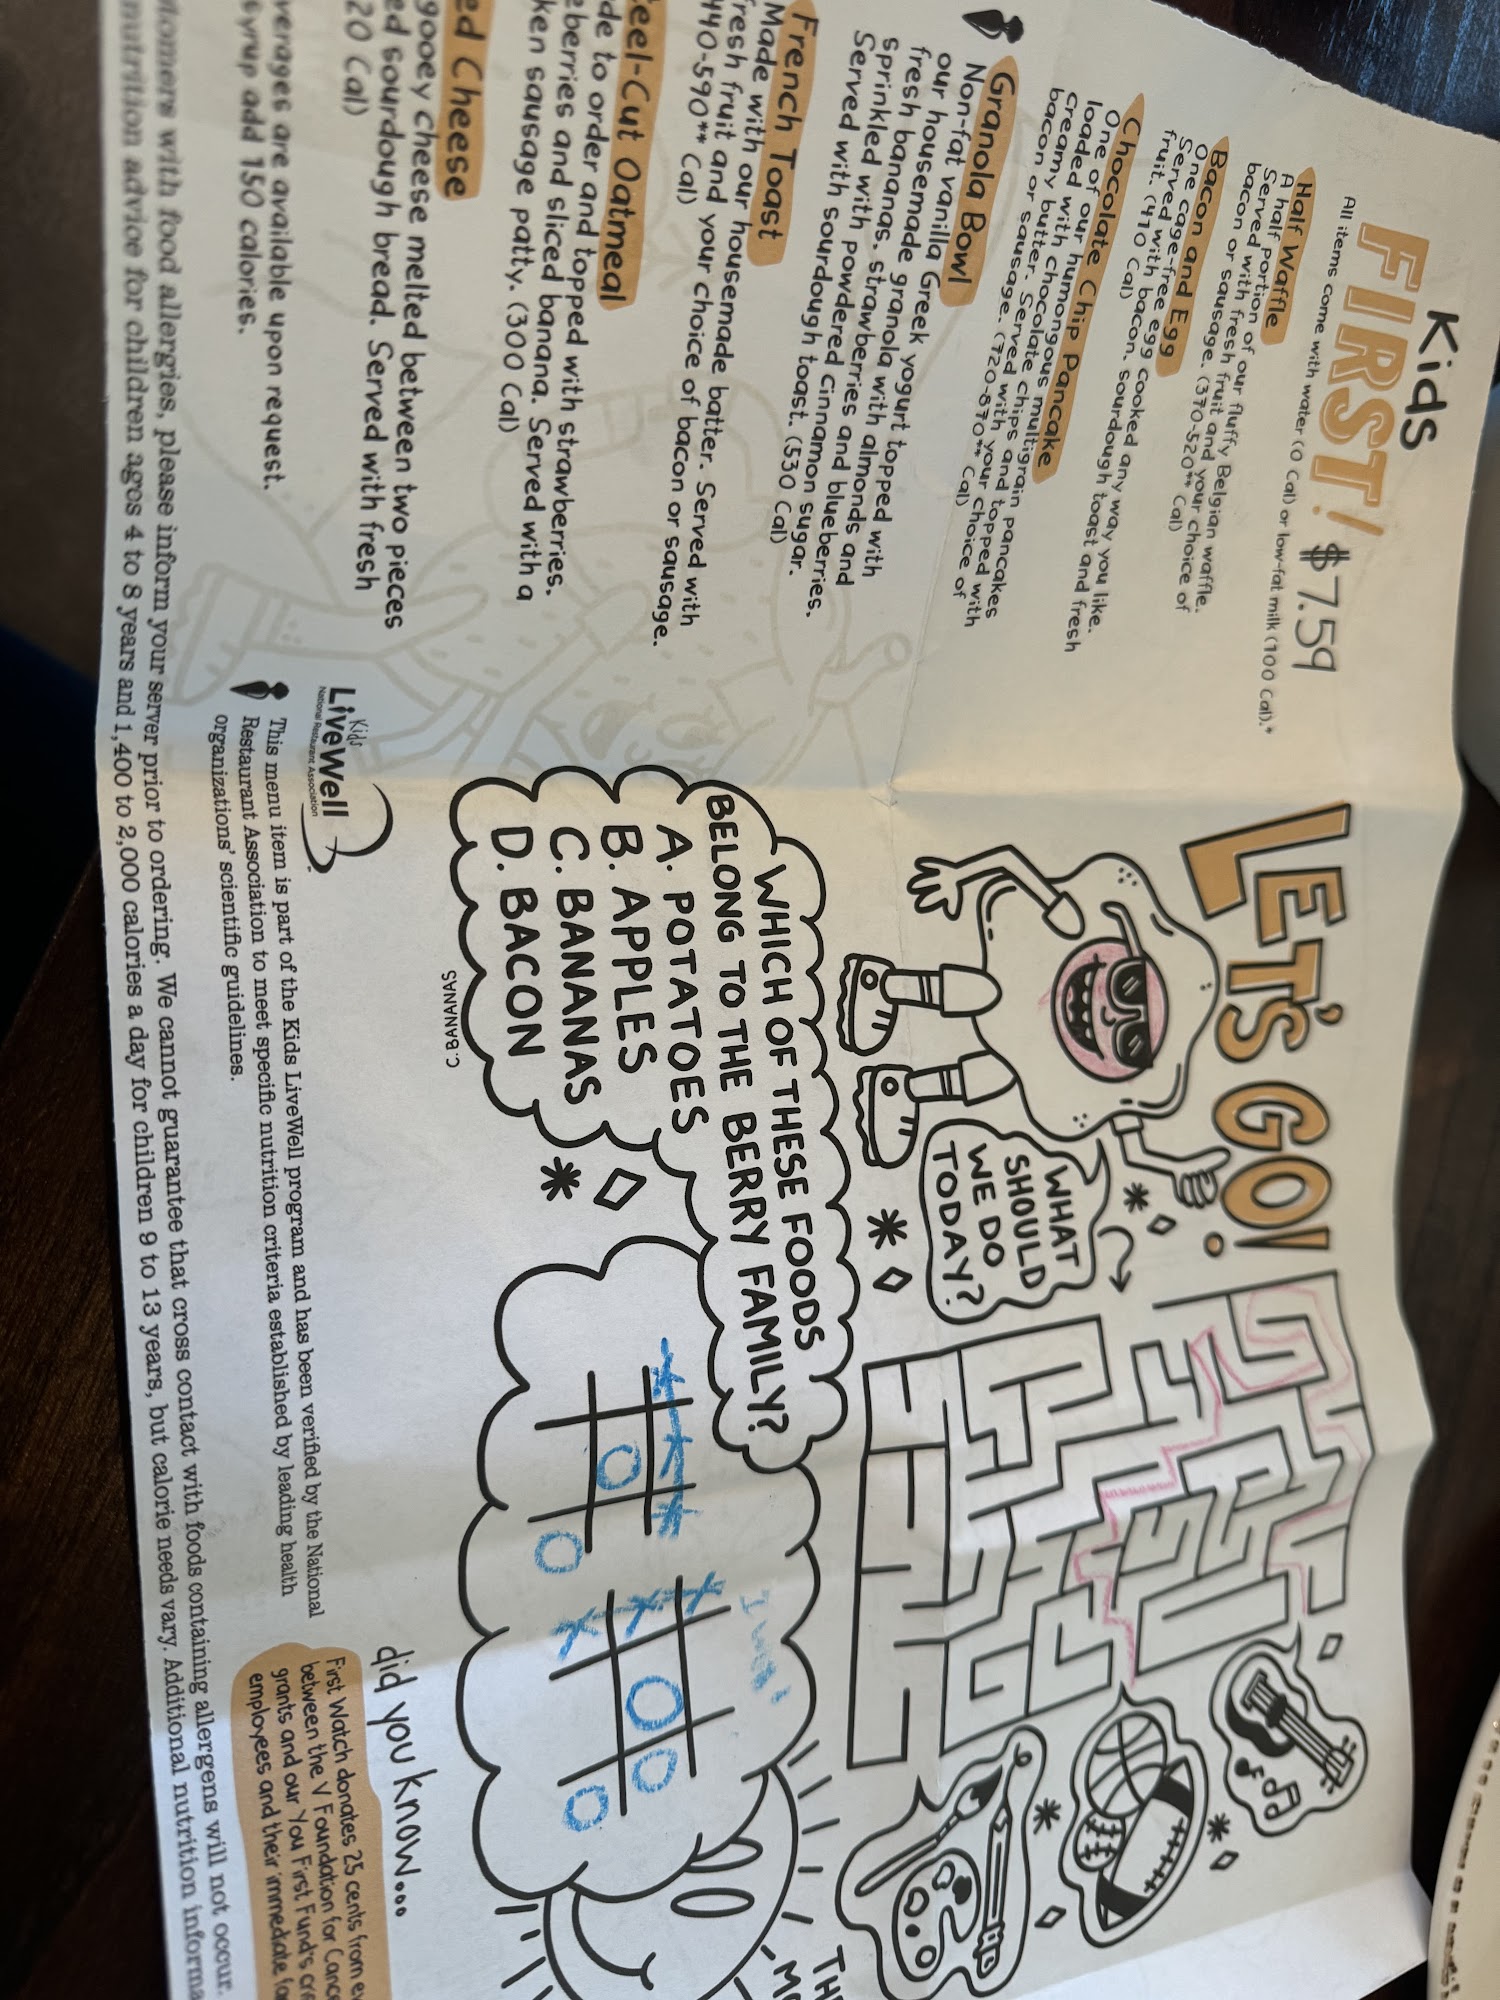 Kids
FIRST! $7.59
All items come with water (0 Cal) or low-fat milk (100 Cal).*
Half Waffle
A half portion of our fluffy Belgian waffle.
Served with fresh fruit and your choice of
bacon or sausage. (370-520** Cal)
Bacon and Egg
One cage-free egg cooked any way you like.
Served with bacon, sourdough toast and fresh
fruit. (410 Cal)
Chocolate Chip Pancake
One of our humongous multigrain pancakes
loaded with chocolate chips and topped with
creamy butter. Served with your choice of
bacon or sausage. (720-870** Cal)
Granola Bowl
Non-fat vanilla Greek yogurt topped with
our housemade granola with almonds and
fresh bananas, strawberries and blueberries.
Sprinkled with powdered cinnamon sugar.
Served with sourdough toast. (530 Cal)
French Toast
Made with our housemade batter. Served with
fresh fruit and your choice of bacon or sausage.
440-590** Cal)
eel-Cut Oatmeal
de to order and topped with strawberries,
eberries and sliced banana. Served with a
ken sausage patty. (300 Cal)
ed Cheese
gooey cheese melted between two pieces
ed sourdough bread. Served with fresh
20 Cal)
verages are available upon request.
syrup add 150 calories.
LET'S GO!
WHAT
SHOULD
WE DO
TODAY?
WHICH OF THESE FOODS
BELONG TO THE BERRY FAMILY?
A. POTATOES
B. APPLES
C. BANANAS
D. BACON
C. BANANAS
Kids
LiveWell
National Restaurant Association
This menu item is part of the Kids LiveWell program and has been verified by the National
Restaurant Association to meet specific nutrition criteria established by leading health
organizations' scientific guidelines.
did you know...
First Watch donates 25 cents from e
between the V Foundation for Canc
grants and our You First Fund's
employees and their immediate
TH
M
tomers with food allergies, please inform your server prior to ordering. We cannot guarantee that cross contact with foods containing allergens will not occur.
nutrition advice for children ages 4 to 8 years and 1,400 to 2,000 calories a day for children 9 to 13 years, but calorie needs vary. Additional nutrition informa